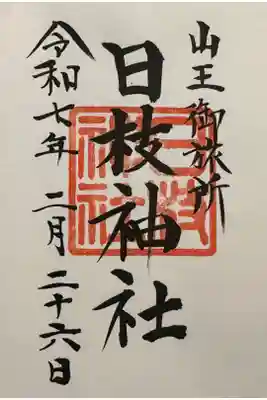 山王御旅所
日枝神社
令和七年 二月 二十六日